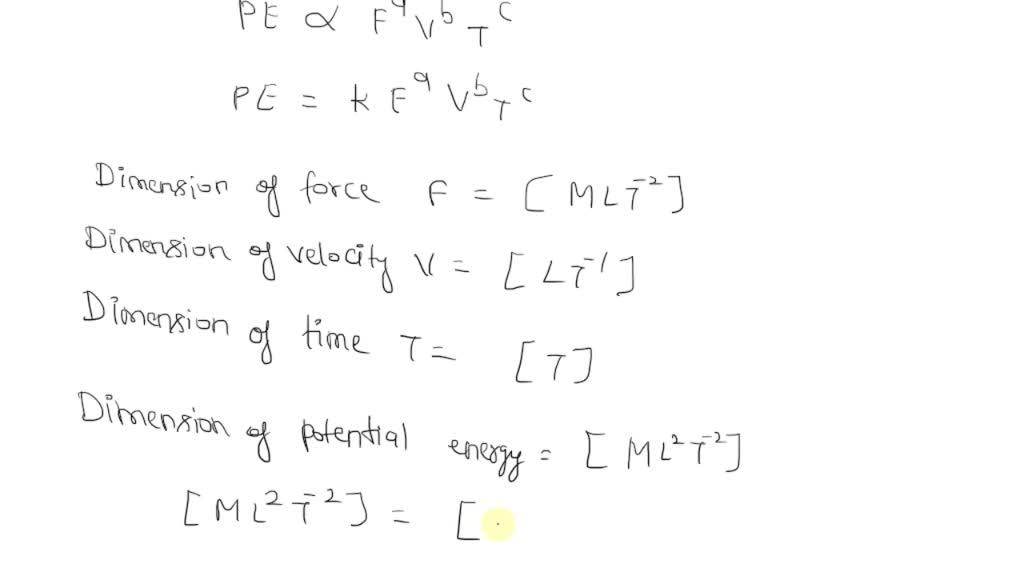 PE ∝ F^a V^b T^c
PE = k F^a V^b T^c
Dimension of force F = [MLT^-2]
Dimension of velocity V = [LT^-1]
Dimension of time T = [T]
Dimension of potential energy = [ML^2T^-2]
[ML^2T^-2] = [